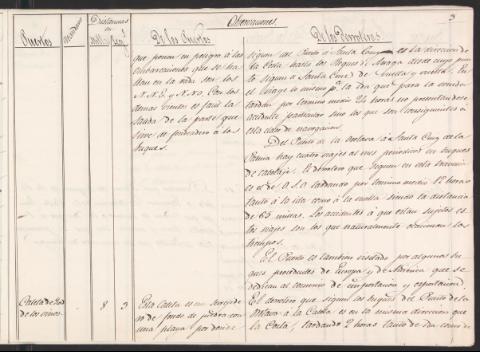 Observaciones.
3
Puertos
Distancias en
De los Puertos
De los Derroteros
que ponen en peligro á las
embarcaciones que se ha-
llan en la rada son los
N.N.E. y N.N.O. Con los
demas vientos es facil la
salida de la parte que
sirve de fondeadero á los
buques.
siguen del Puerto á Santa Cruz es la direccion de
la Costa hasta los Roques de Anaga desde cuyo punto
lo siguen á Santa Cruz de vuelta y vuelta. En
el viage lo mismo pª. la ida que para la venida
tardan por termino medio 24 horas no presentandose
accidente particular sino los que son consiguientes á
esta clase de navegacion.
Del Puerto de la Orotava á Santa Cruz de la
Palma hay cuatro viages al mes periodicos en buques
de cabotaje. El derrotero que siguen en esta travesia
es el de O.S.O. tardando por termino medio 12 horas
tanto á la ida como á la vuelta siendo la distancia
de 65 millas. Los accidentes á que estan sujetos es-
tos viajes son los que naturalmente ocasionan los
tiempos.
El Puerto es tambien visitado por algunos bu-
ques procedentes de Europa y de America que se
dedican al comercio de importacion y esportacion.
Caleta de
de los vinos
8
3
Esta Caleta es un
de fondo de piedra con
una playa por donde
El derrotero que siguen los buques del Puerto de la
Orotava á la Caleta es en la misma direccion que
la Costa, tardando 2 horas tanto de ida como de